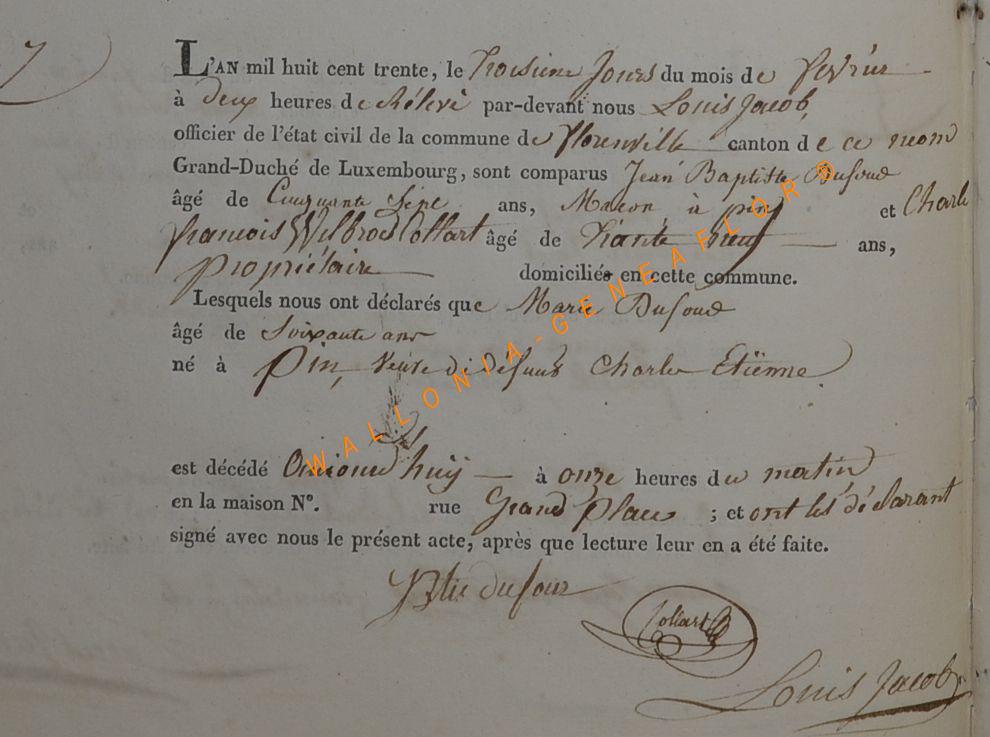 7
L'AN mil huit cent trente, le troisieme jours du mois de fevrier
à deux heures de Rélevé par-devant nous Louis Jacob,
officier de l'état civil de la commune de florenville canton de ce nom
Grand-Duché de Luxembourg, sont comparus Jean Baptiste Dufour
âgé de Cinquante Sept ans, Macon à pin et Charle
francois Wilbrod Collart âgé de trante neuf ans,
propriétaire domiciliés en cette commune.
Lesquels nous ont déclarés que Marie Dufour
âgé de Soixante ans
né à pin, veuve de défunt Charles Etiënne
est décédé aujourd'huÿ à onze heures du martin
en la maison N°. rue Grand place ; et ont lés déclarant
signé avec nous le présent acte, après que lecture leur en a été faite.
JBtte dufour
Collart
Louis Jacob
WALLONIA-GENEAFLOR®